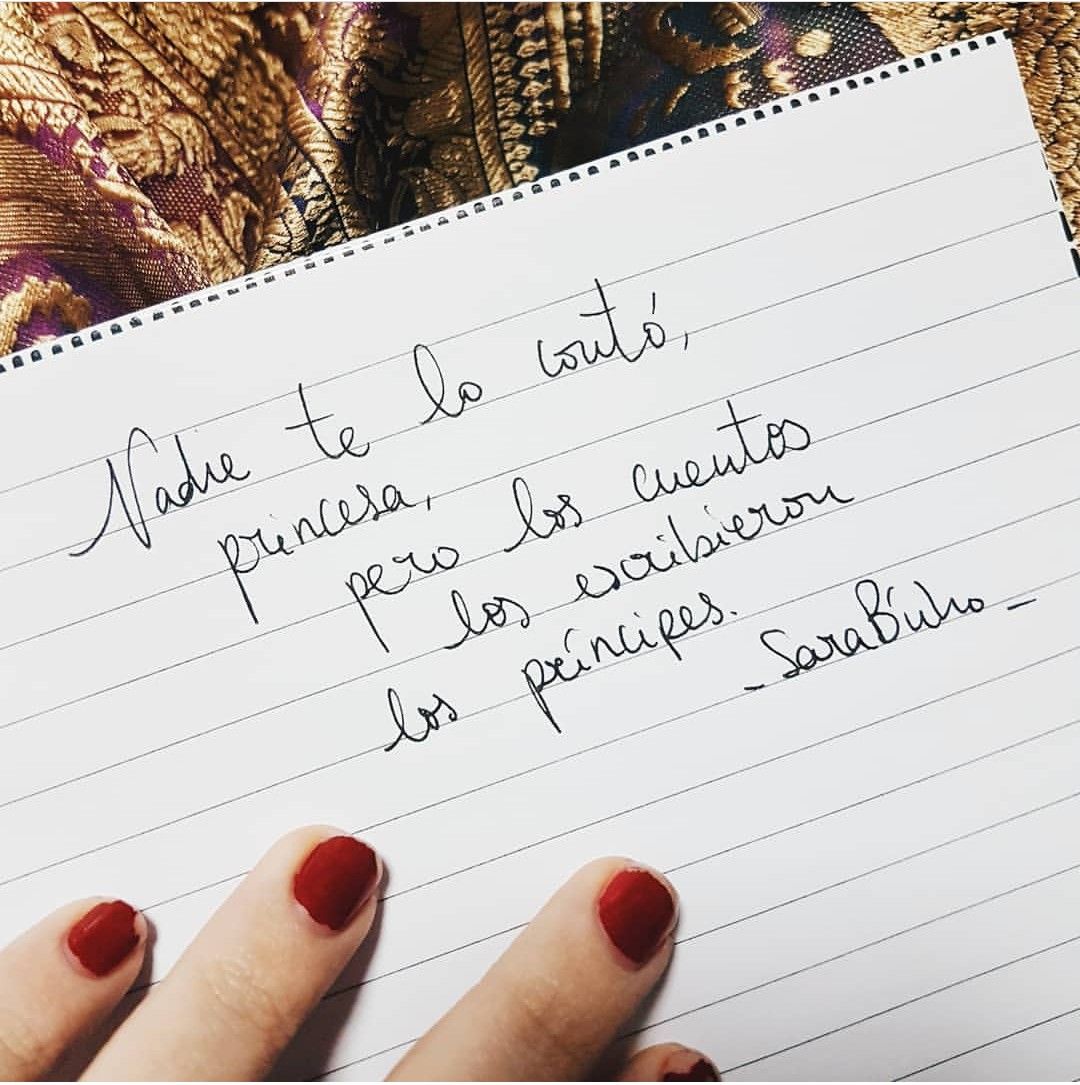 Nadie te lo contó,
princesa,
pero los cuentos
los escribieron
los príncipes.
- Sara Búho -